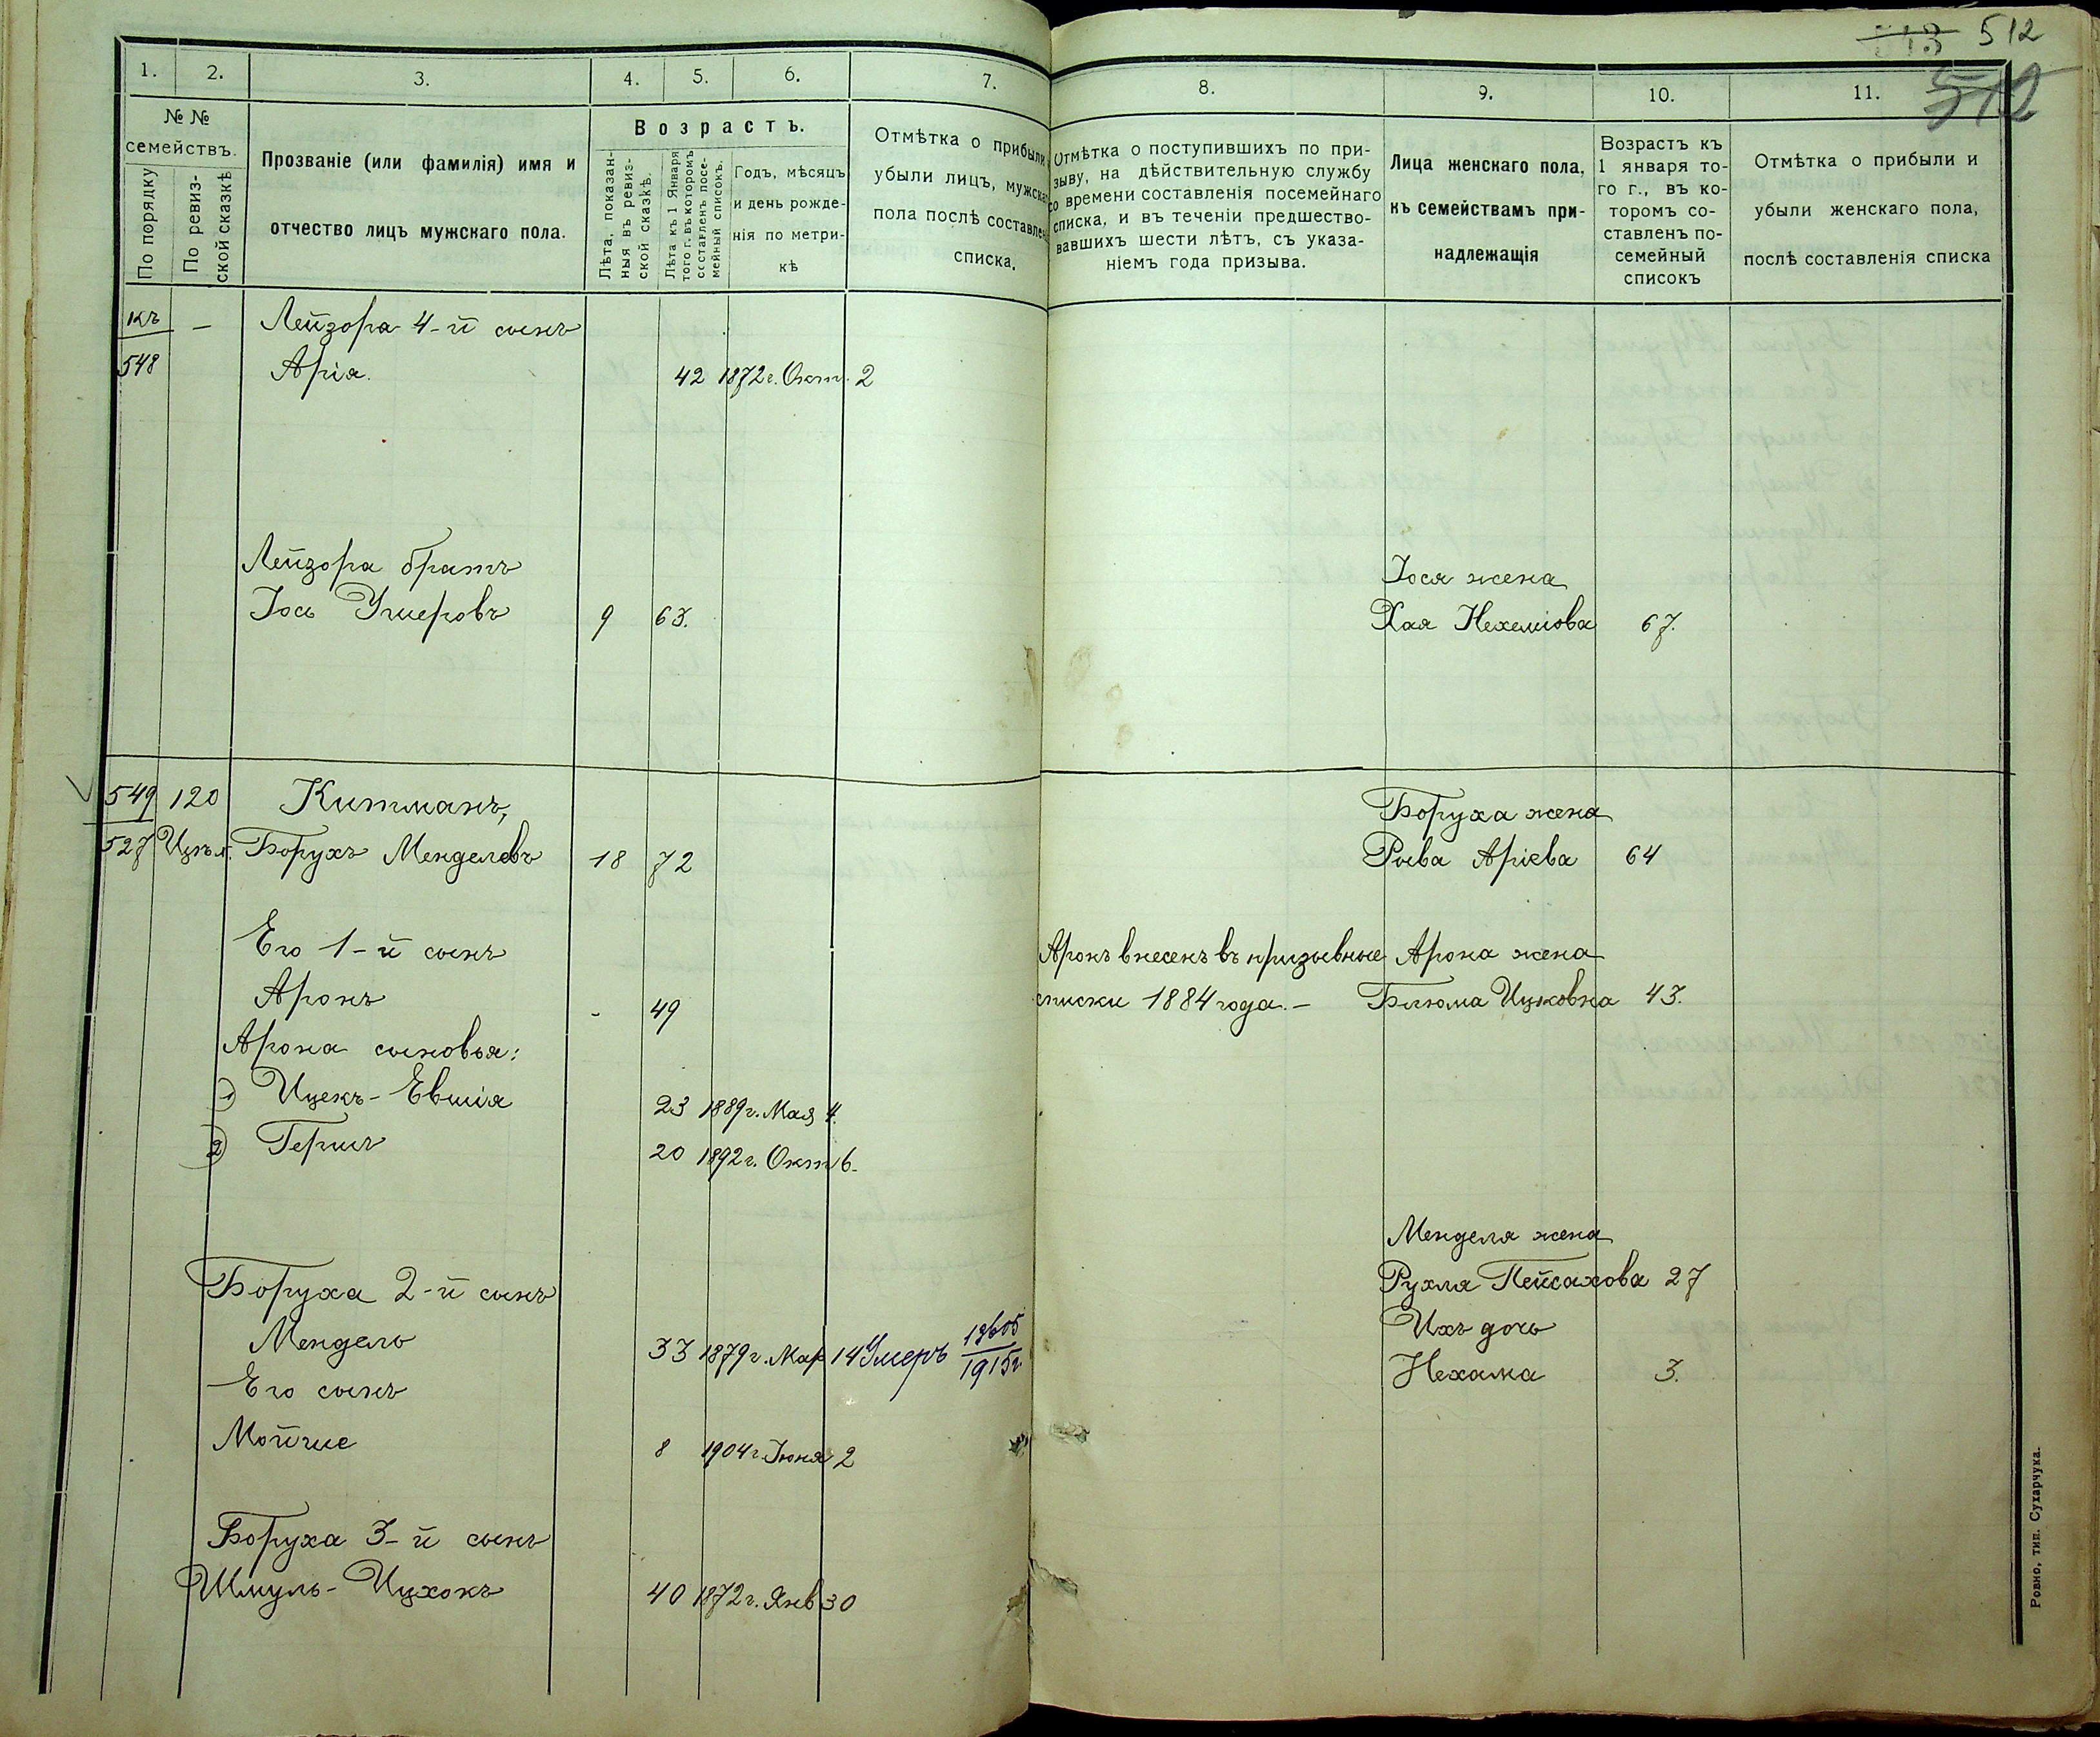 512
512
1.
2.
3.
4.
5.
6.
7.
8.
9.
10.
11.
№ №
семействъ.
По порядку
По ревиз-
ской сказкѣ
Прозваніе (или фамилія) имя и
отчество лицъ мужскаго пола.
Возрастъ.
Лѣта, показан-
ныя въ ревиз-
ской сказкѣ.
Лѣта къ 1 Января
того г. въ которомъ
составленъ посе-
мейный списокъ.
Годъ, мѣсяцъ
и день рожде-
нія по метри-
кѣ
Отмѣтка о прибыли
убыли лицъ, мужска
пола послѣ составлен
списка.
Отмѣтка о поступившихъ по при-
зыву, на дѣйствительную службу
со времени составленія посемейнаго
списка, и въ теченіи предшество-
вавшихъ шести лѣтъ, съ указа-
ніемъ года призыва.
Лица женскаго пола,
къ семействамъ при-
надлежащія
Возрастъ къ
1 января то-
го г., въ ко-
торомъ со-
ставленъ по-
семейный
списокъ
Отмѣтка о прибыли и
убыли женскаго пола,
послѣ составленія списка
къ — Лейзора 4-й сынъ
548 Арія. 42 1872 г. Окт. 2
Лейзора братъ Іося жена
Іось Ушеровъ 9 63. Хая Нехеміова 67.
549 120 Китманъ, Боруха жена
527 Борухъ Менделевъ 18 72 Рыва Аріева 64
Его 1-й сынъ Аронъ внесенъ въ призывные Арона жена
Аронъ - 49 списки 1884 года. — Блюма Ицковна 43.
Арона сыновья:
1) Ицекъ-Евшія 23 1889 г. Мая 4.
2) Гершъ 20 1892 г. Окт 6.
Менделя жена
Боруха 2-й сынъ Рухля Пейсахова 27
Мендель 33 1879 г. Мар 14 Умеръ 1915 г. Ихъ дочь
Его сынъ Нехама 3.
Мойше 8 1904 г. Іюня 2
Боруха 3-й сынъ
Шмуль-Ицхокъ 40 1872 г. Янв 30
Ровно, тип. Сухарчука.